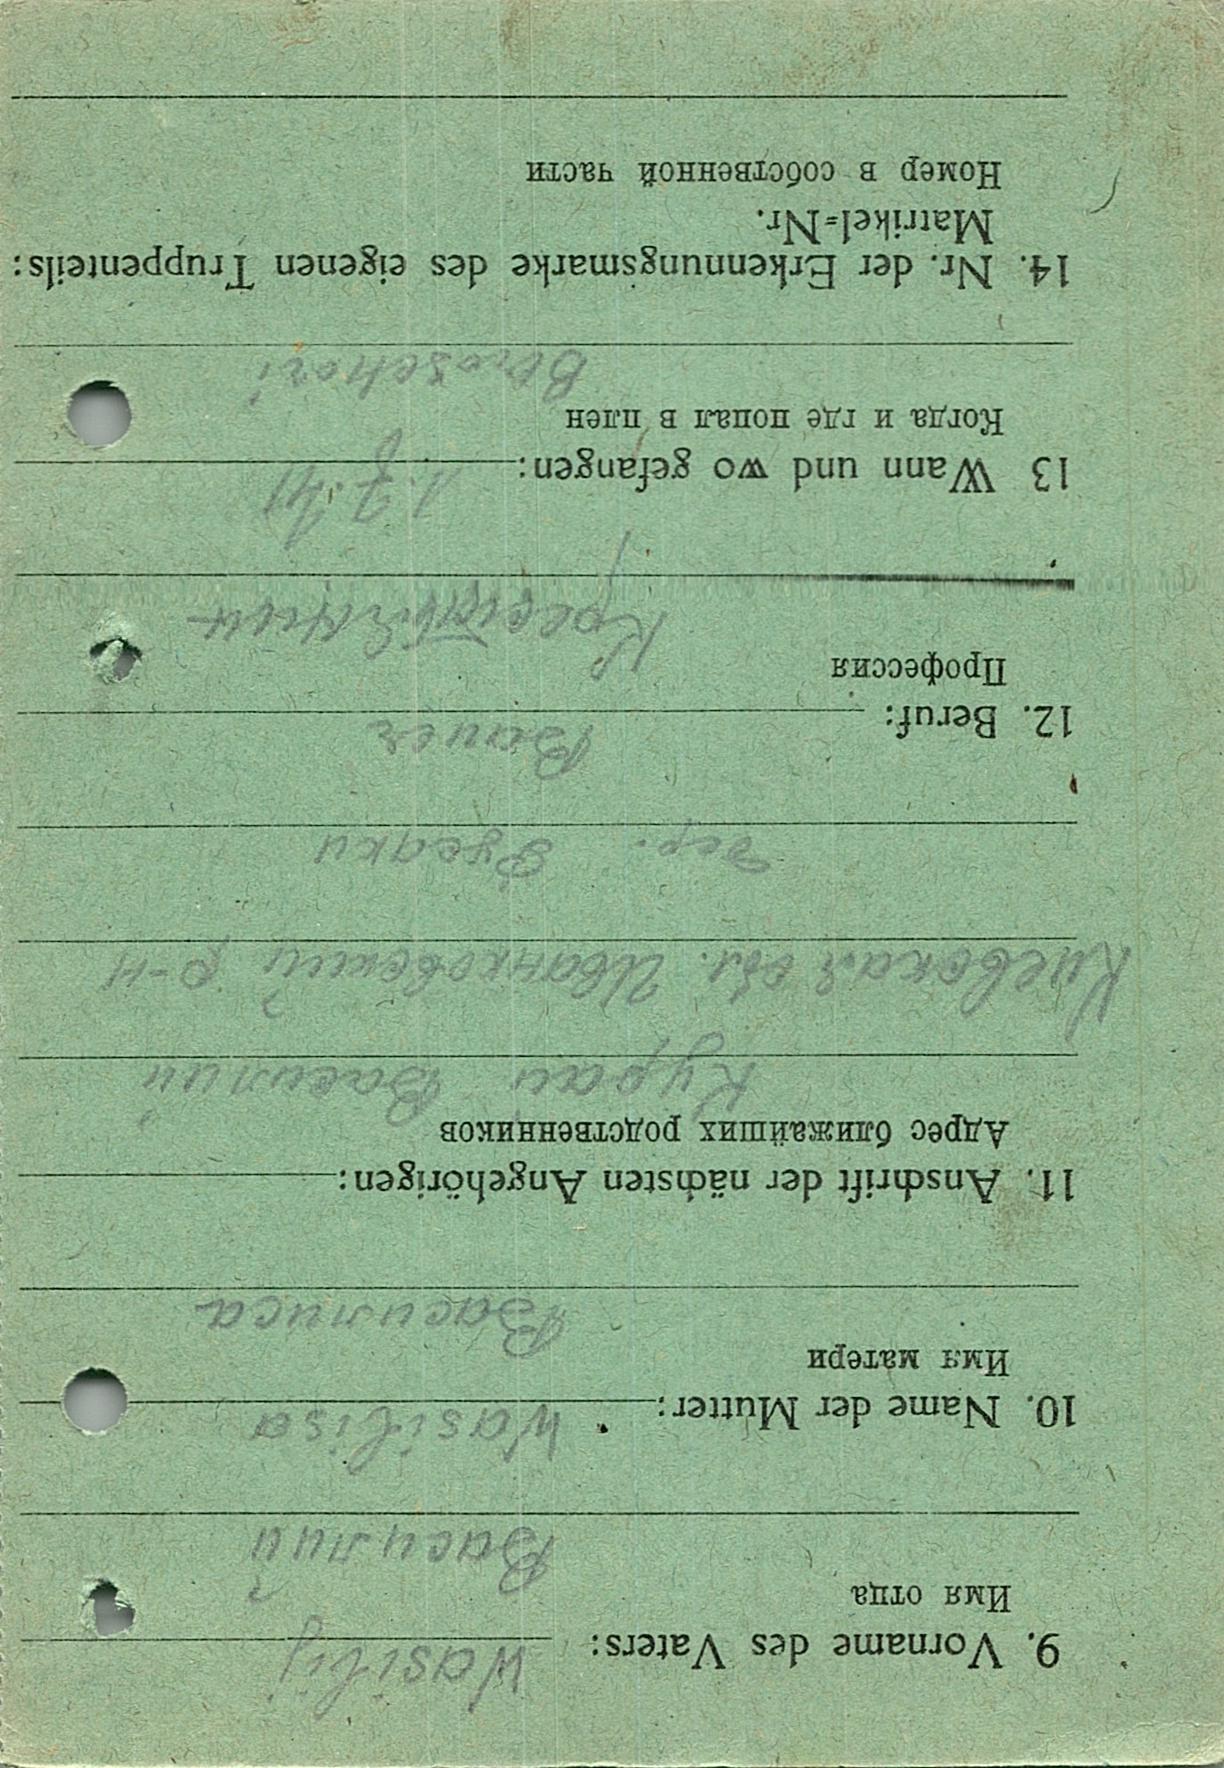 9. Vorname des Vaters: Wasilij
Имя отца
Василий
10. Name der Mutter: Wasilisa
Имя матери
Василиса
11. Anschrift der nächsten Angehörigen:
Адрес ближайших родственников
Курач Василий
Киевская обл. Иванковский р-н
дер. Русаки
12. Beruf: Bauer
Профессия
Крестьянин
13 Wann und wo gefangen:
Когда и где попал в плен
14. Nr. der Erkennungsmarke des eigenen Truppenteils:
Matrikel=Nr.
Номер в собственной части